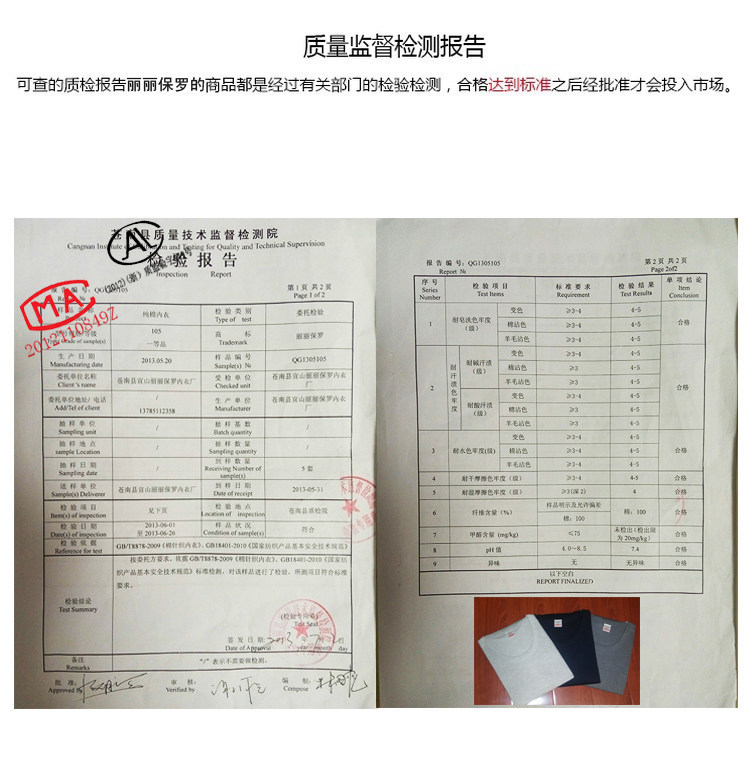 质量监督检测报告
可查的质检报告丽丽保罗的商品都是经过有关部门的检验检测，合格达到标准之后经批准才会投入市场。
苍南县质量技术监督检测院
Cangnan Institute of Inspection and Testing for Quality and Technical Supervision
检验报告
Inspection Report
MA
2012110849Z
A
(2012)(浙)
第1页 共2页
Page 1 of 2
纯棉内衣 检验类别 Type of test 委托检验
105 一等品 商标 Trademark 丽丽保罗
生产日期 Manufacturing date 2013.05.20 样品编号 Sample(s) № QG1305105
委托单位名称 Client's name 苍南县宜山丽丽保罗内衣厂 受检单位 Checked unit 苍南县宜山丽丽保罗内衣厂
委托单位地址/电话 Add/Tel of client / 13785112358 生产单位 Manufacturer 苍南县宜山丽丽保罗内衣厂
抽样单位 Sampling unit / 抽样基数 Batch quantity /
抽样地点 sample Location / 抽样数量 Sampling quantity /
抽样日期 Sampling date / 到样数量 Receiving Number of sample(s) 5套
送样单位 Sample(s) Deliverer 苍南县宜山丽丽保罗内衣厂 到样日期 Date of receipt 2013-05-31
检验项目 Item(s) of inspection 见下页 检验地点 Location of inspection 苍南县质检院
检验日期 Date(s) of inspection 2013-06-01 至 2013-06-26 样品状况 Condition of sample(s) 符合
检验依据 Reference for test GB/T8878-2009《棉针织内衣》、GB18401-2010《国家纺织产品基本安全技术规范》
检验结论 Test Summary 按委托方要求，依据GB/T8878-2009《棉针织内衣》、GB18401-2010《国家纺织产品基本安全技术规范》标准检测，对该样品进行了检验，所测项目符合标准要求。
(检验专用章)
Test Seal
签发日期
Date of Approval year month day
备注 Remarks "/"表示不需要做检测。
批准: Approved by
审核: Verified by
编制: Compose
报告编号: QG1305105
Report №
第2页 共2页
Page 2of2
序号 Series Number 检验项目 Test Items 标准要求 Requirement 检验结果 Test Results 单项结论 Item Conclusion
1 耐皂洗色牢度(级) 变色 ≥3-4 4-5 合格
棉沾色 ≥3-4 4-5
羊毛沾色 ≥3-4 4-5
2 耐汗渍色牢度 耐碱汗渍(级) 变色 ≥3-4 4-5 合格
棉沾色 ≥3 4-5
羊毛沾色 ≥3 4-5
耐酸汗渍(级) 变色 ≥3-4 4-5
棉沾色 ≥3 4-5
羊毛沾色 ≥3 4-5
3 耐水色牢度(级) 变色 ≥3-4 4-5 合格
棉沾色 ≥3 4-5
羊毛沾色 ≥3 4-5
4 耐干摩擦色牢度(级) ≥3-4 4-5 合格
5 耐湿摩擦色牢度(级) ≥3(深2) 4 合格
6 纤维含量(%) 样品明示及允许偏差 棉: 100 棉: 100 合格
7 甲醛含量(mg/kg) ≤75 未检出(检出限为20mg/kg) 合格
8 pH值 4.0~8.5 7.4 合格
9 异味 无 无异味 合格
以下空白
REPORT FINALIZED